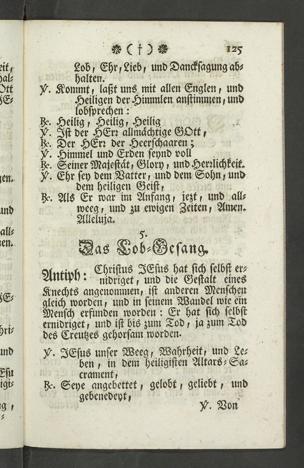 ❋ ( † ) ❋ 125
Lob, Ehr, Lieb, und Dancksagung ab-
halten.
℣. Kommt, laßt uns mit allen Englen, und
Heiligen der Himmlen anstimmen, und
lobsprechen:
℟. Heilig, Heilig, Heilig
℣. Ist der HErr allmächtige GOtt,
℟. Der HErr der Heerschaaren;
℣. Himmel und Erden seynd voll
℟. Seiner Majestät, Glory, und Herrlichkeit.
℣. Ehr sey dem Vatter, und dem Sohn, und
dem heiligen Geist,
℟. Als Er war im Anfang, jezt, und all-
weeg, und zu ewigen Zeiten, Amen.
Alleluja.
5.
Das Lob-Gesang.
Antiph: Christus JEsus hat sich selbst er-
nidriget, und die Gestalt eines
Knechts angenommen, ist anderen Menschen
gleich worden, und in seinem Wandel wie ein
Mensch erfunden worden: Er hat sich selbst
ernidriget, und ist bis zum Tod, ja zum Tod
des Creutzes gehorsam worden.
℣. JEsus unser Weeg, Wahrheit, und Le-
ben, in dem heiligisten Altars-Sa-
crament,
℟. Seye angebettet, gelobt, geliebt, und
gebenedeyt,
℣. Von